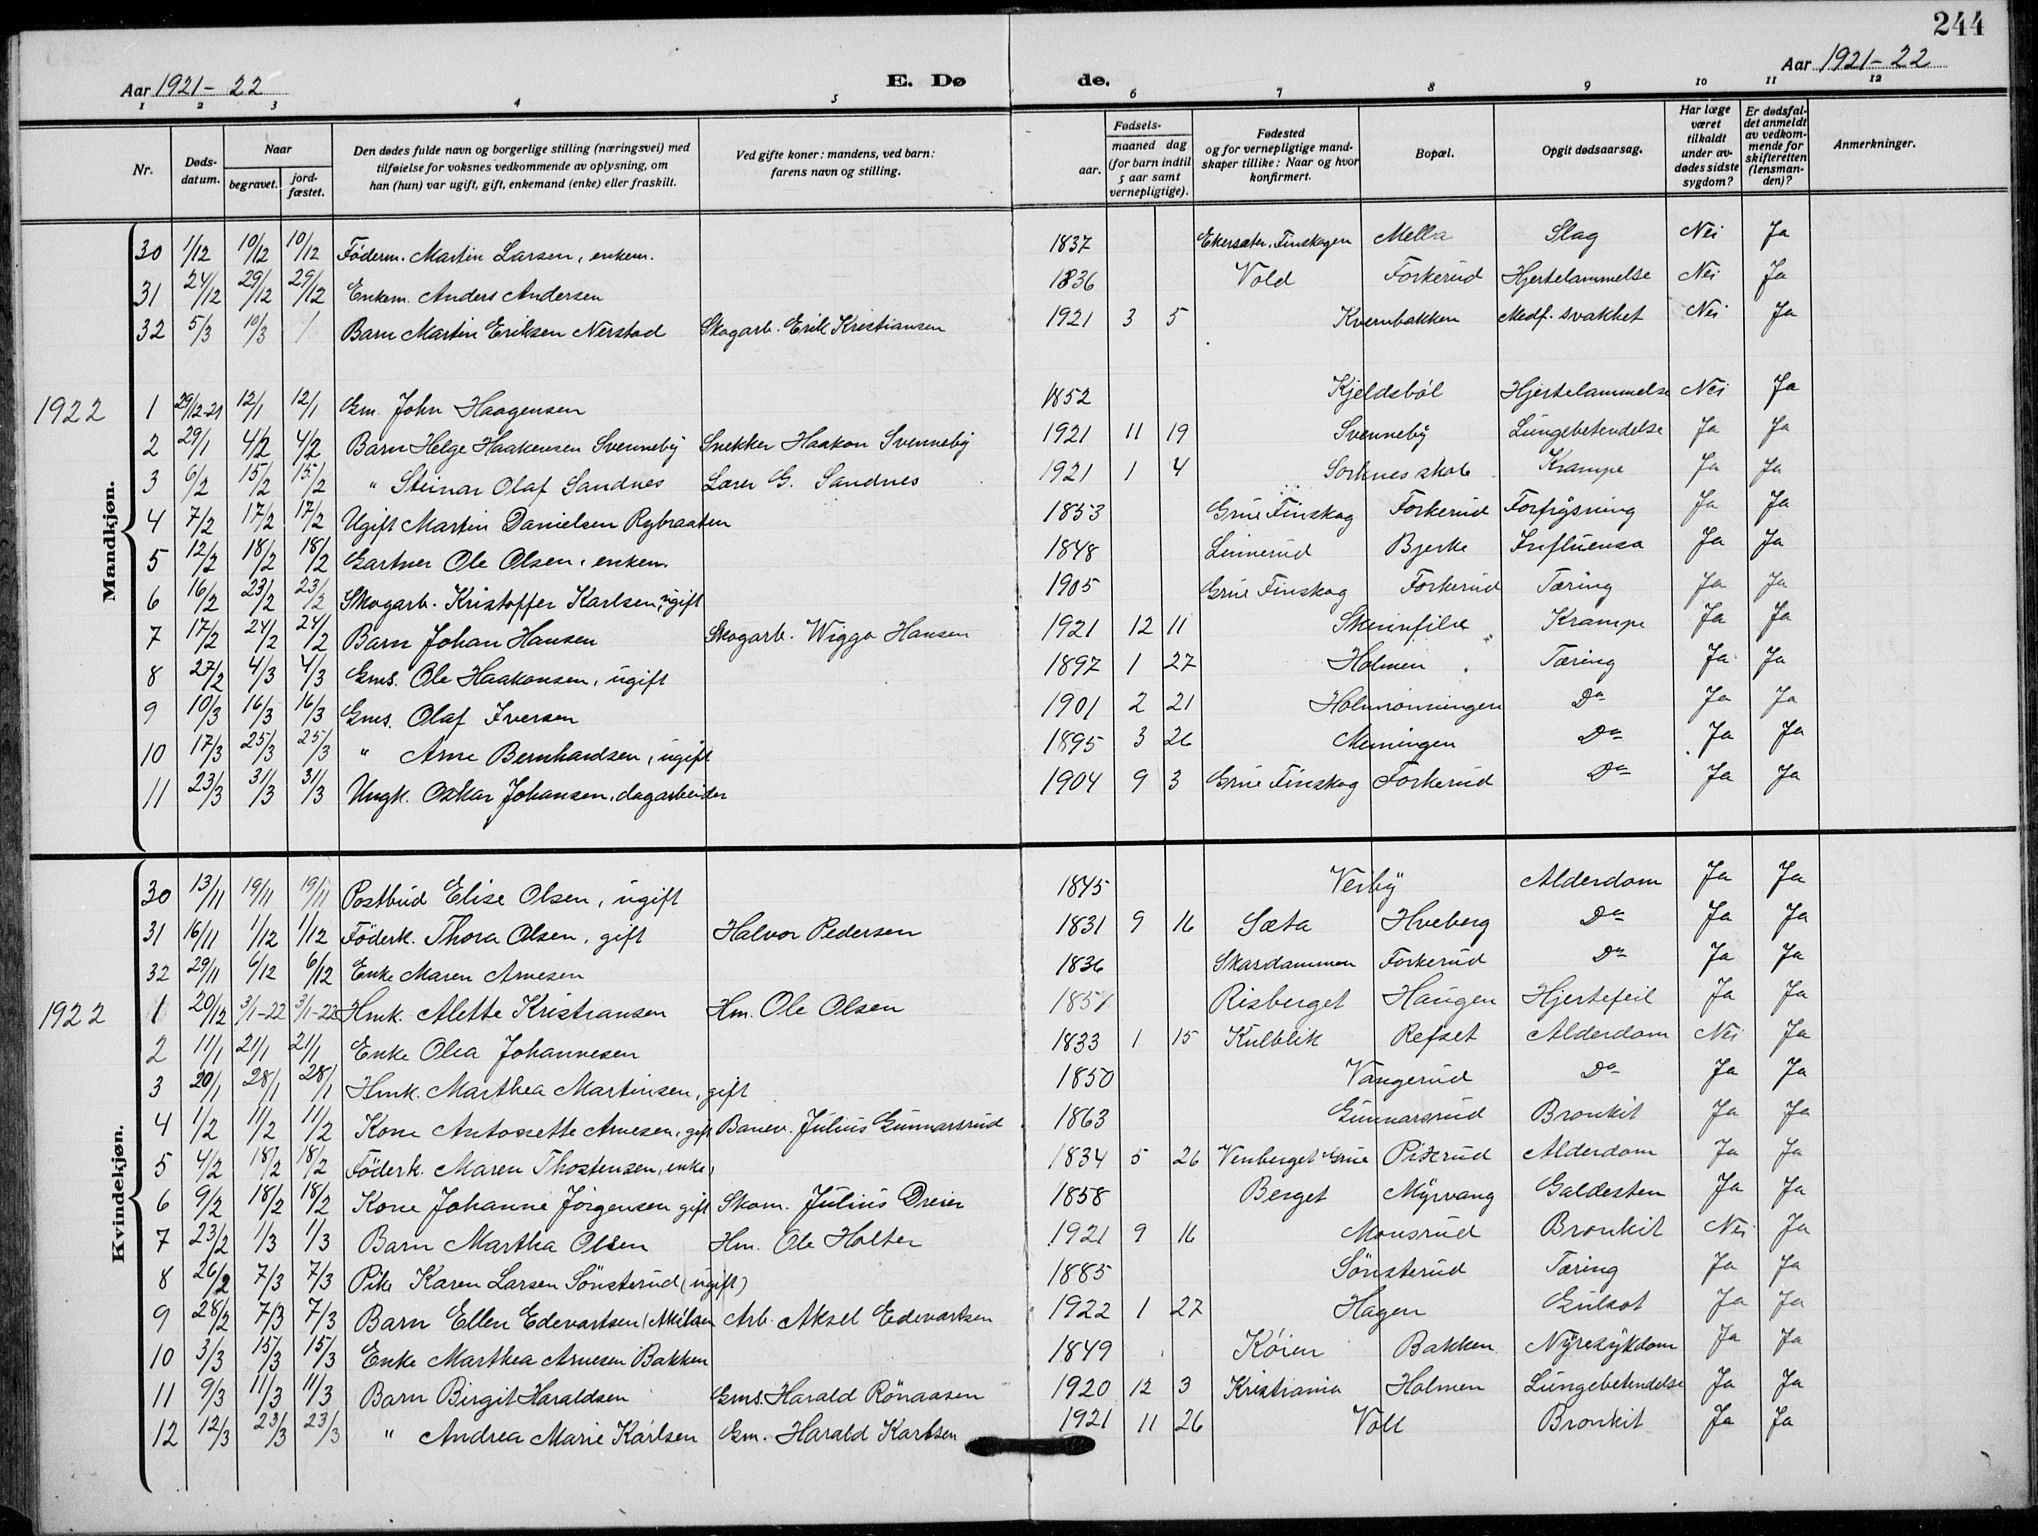 244
Aar 1921-22 E. Dø de. Aar 1921-22
1 2 3 4 5 6 7 8 9 10 11 12
Nr. Døds-datum. Naar begravet. jord-fæstet. Den dødes fulde navn og borgerlige stilling (næringsvei) med tilføielse for voksnes vedkommende av oplysning, om han (hun) var ugift, gift, enkemand (enke) eller fraskilt. Ved gifte koner: mandens, ved barn: farens navn og stilling. Fødsels- aar. maaned dag (for barn indtil 5 aar samt vernepligtige). Fødested og for vernepligtige mandskaper tillike: Naar og hvor konfirmert. Bopæl. Opgit dødsaarsag. Har læge været tilkaldt under avdødes sidste sygdom? Er dødsfaldet anmeldt av vedkommende for skifteretten (lensmanden)? Anmerkninger.
Mandkjøn.
30 1/12 10/12 10/12 Föderm. Martin Larsen, enkem. 1837 Ekersæter, Finskogen Mella Slag Nei Ja
31 24/12 29/12 29/12 Enkem. Anders Andersen 1836 Vold Forkerud Hjertelammelse Nei Ja
32 5/3 10/3 / Barn Martin Eriksen Nerstad Skogarb. Erik Kristiansen 1921 3 5 Kvernbakken Medf. svakhet Nei Ja
1922 1 29/12-21 12/1 12/1 Gm. John Haagensen 1852 Kjeldsböl Hjertelammelse Nei Ja
2 29/1 4/2 4/2 Barn Helge Haakensen Svenneby Snekker Haakon Svenneby 1921 11 19 Svenneby Lungebetendelse Ja Ja
3 6/2 15/2 15/2 " Steinar Olaf Sandnes Lærer G. Sandnes 1921 1 4 Sorknes skole Krampe Ja Ja
4 7/2 17/2 17/2 Ugift Martin Danielsen Rybraaten 1853 Grue Finskog Forkerud Forfrysning Ja Ja
5 12/2 18/2 18/2 Gartner Ole Olsen, enkem. 1848 Linnerud Bjerke Influensa Ja Ja
6 16/2 23/2 23/2 Skogarb. Kristoffer Karlsen, ugift 1905 Grue Finskog Forkerud Tæring Ja Ja
7 17/2 24/2 24/2 Barn Johan Hansen Skogarb. Wiggo Hansen 1921 12 11 Krampe Ja Ja
8 27/2 4/3 4/3 Gms. Ole Haakonsen, ugift 1897 1 27 Holmen Tæring Ja Ja
9 10/3 16/3 16/3 Gms. Olaf Iversen 1901 2 21 Holmrönningen Do Ja Ja
10 17/3 25/3 25/3 " Arne Bernhardsen, ugift 1895 3 26 Meningen Do Ja Ja
11 23/3 31/3 31/3 Ungk. Oskar Johansen, dagarbeider 1904 9 3 Grue Finskog Forkerud Do Ja Ja
Kvindekjøn.
30 13/11 19/11 19/11 Postbud Elise Olsen, ugift 1845 Verby Alderdom Ja Ja
31 16/11 1/12 1/12 Föderk. Thora Olsen, gift Halvor Pedersen 1831 9 16 Sæta Hveberg Do Ja Ja
32 29/11 6/12 6/12 Enke Maren Arnesen 1836 Skardammen Forkerud Do Ja Ja
1922 1 20/12 3/1-22 3/1-22 Hmk. Alette Kristiansen Hm. Ole Olsen 1851 Risberget Haugen Hjertefeil Ja Ja
2 11/1 21/1 21/1 Enke Olea Johannesen 1833 1 15 Kulblik Refset Alderdom Nei Ja
3 20/1 28/1 28/1 Hmk. Marthea Martinsen, gift 1850 Vangerud Do Ja Ja
4 1/2 11/2 11/2 Kone Antonette Arnesen, gift Banev. Julius Gunnarsrud 1863 Gunnarsrud Bronkit Ja Ja
5 4/2 18/2 18/2 Föderk. Maren Thostensen, enke, 1834 5 26 Venberget Grue Pikerud Alderdom Ja Ja
6 9/2 18/2 18/2 Kone Johanne Jörgensen gift Skom. Julius Dreier 1858 Berget Myrvang Galdesten Ja Ja
7 23/2 1/3 1/3 Barn Martha Olsen Hm. Ole Holter 1921 9 16 Monsrud Bronkit Nei Ja
8 26/2 7/3 7/3 Pike Karen Larsen Sönsterud (ugift) 1885 Sönsterud Tæring Ja Ja
9 28/2 7/3 7/3 Barn Ellen Edevartsen Arb. Aksel Edevartsen 1922 1 27 Hagen Gulsot Ja Ja
10 3/3 15/3 15/3 Enke Marthea Arnesen Bakken 1849 Køien Bakken Nyresykdom Ja Ja
11 9/3 11/3 11/3 Barn Birgit Haraldsen Gms. Harald Rönaasen 1920 12 3 Kristiania Holmen Lungebetendelse Ja Ja
12 12/3 23/3 23/3 " Andrea Marie Karlsen Gm. Harald Karlsen 1921 11 26 Voll Bronkit Ja Ja